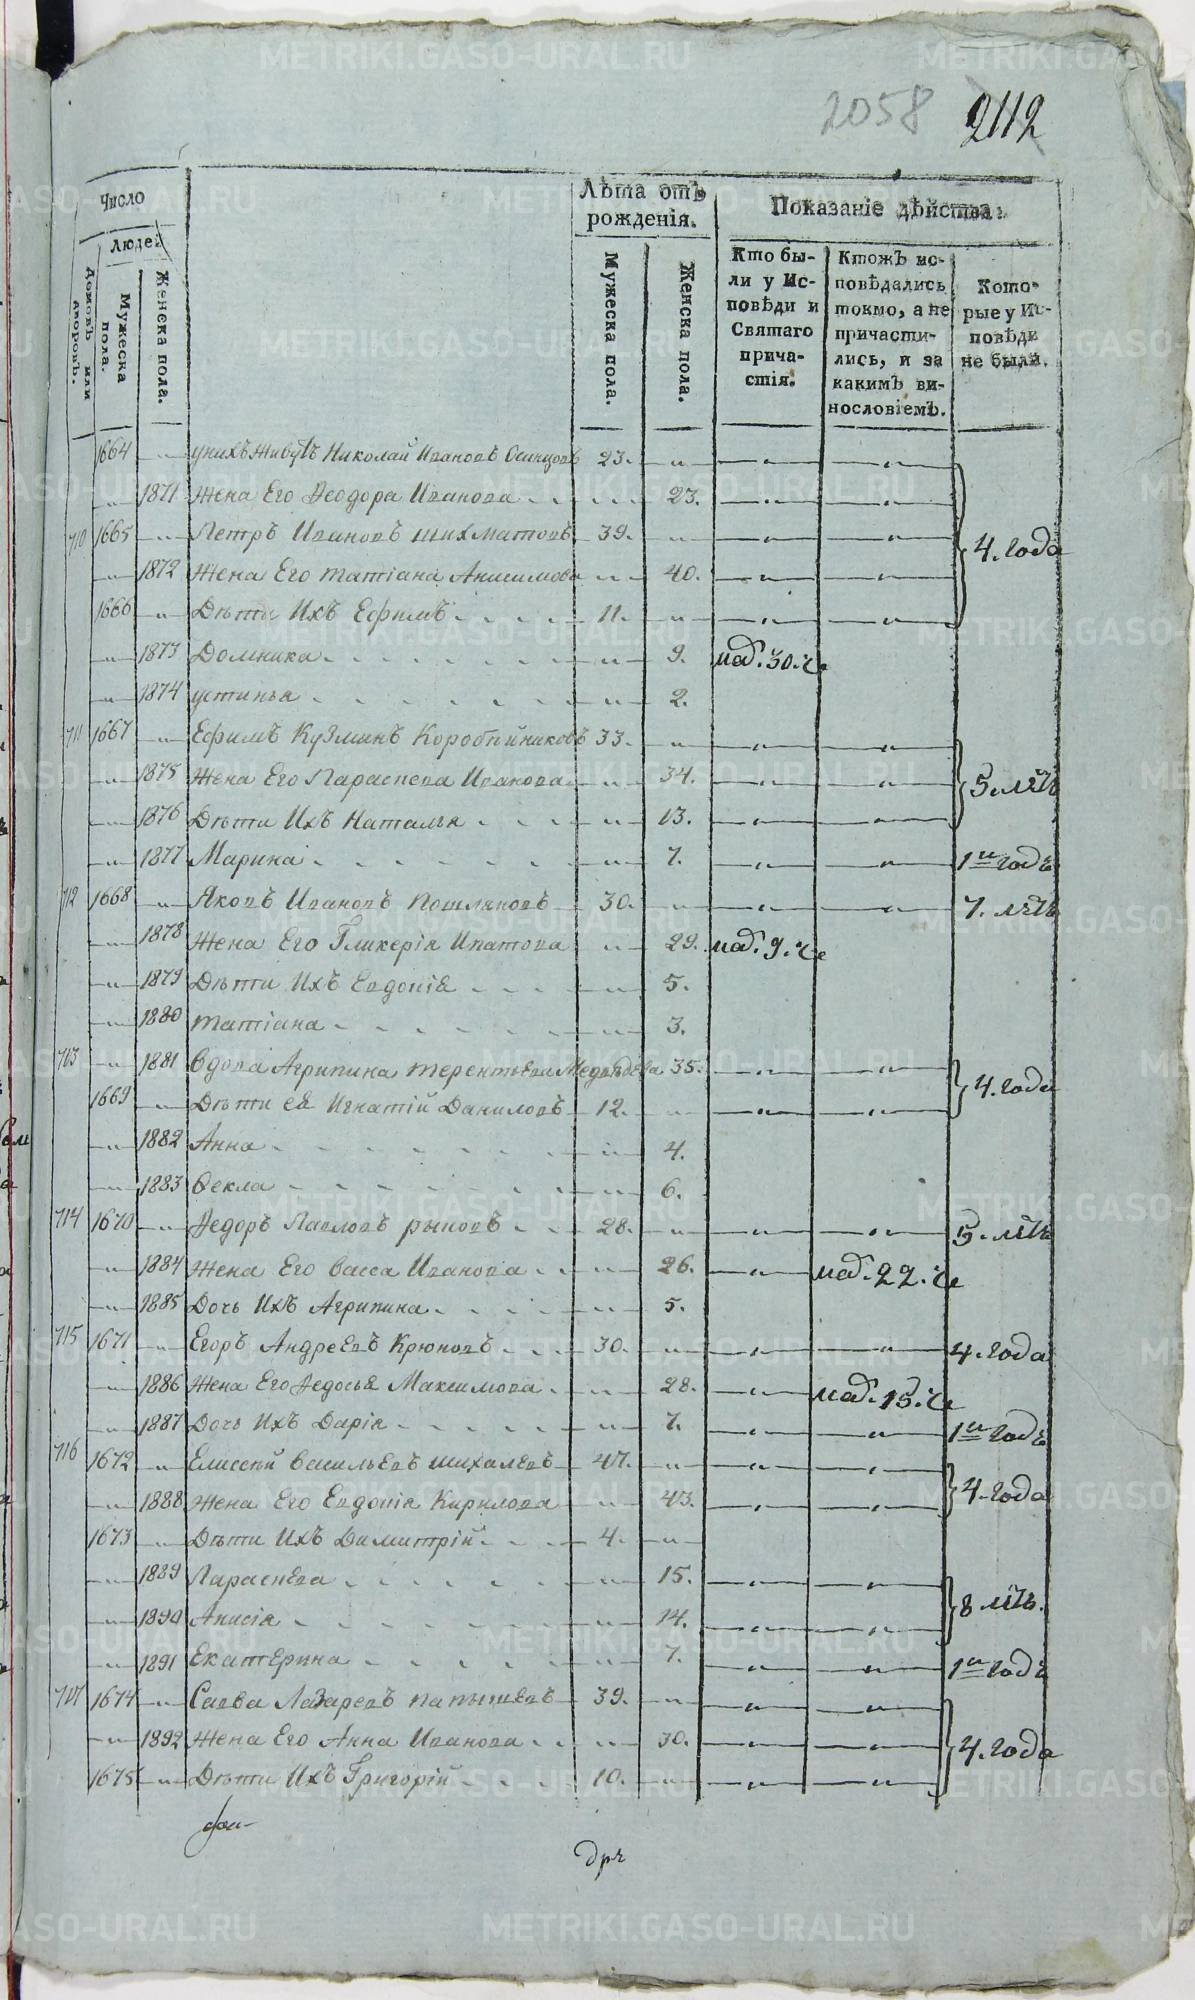 2058 2112
Число
людей
Домовъ или дворовъ.
Мужеска пола.
Женска пола.
Лѣта отъ рожденія.
Мужеска пола.
Женска пола.
Показаніе дѣйства.
Кто были у Исповѣди и Святаго причастія.
Ктожъ исповѣдались токмо, а не причастились, и за какимъ винословіемъ.
Которые у Исповѣди не были.
1664 унихъ живутъ Николай Ивановъ Осинцовъ 23.
1871 Жена Его Ѳеодора Иванова 23.
710 1665 Петръ Ивановъ шихматовъ 39. 4. года
1872 Жена Его Татіана Анисимова 40.
1666 Дѣти Ихъ Ефимъ 11.
1873 Домника 9.
1874 устинья 2.
711 1667 Ефимъ Кузминъ Коробейниковъ 33.
1875 Жена Его Параскева Иванова 34. 5. лѣтъ
1876 Дѣти Ихъ Наталья 13.
1877 Марина 7. 1й годъ
712 1668 Яковъ Ивановъ Пошляковъ 30. 7. лѣтъ
1878 Жена Его Гликерія Ипатова 29.
1879 Дѣти Ихъ Евдокіѣ 5.
1880 Татіана 3.
713 1881 Вдова Агрипина Терентьева Медвѣдева 35.
1669 Дѣти еѣ Игнатій Даниловъ 12. 4. года
1882 Анна 4.
1883 Ѳекла 6.
714 1670 Ѳедоръ Павловъ рыковъ 28. 5. лѣтъ
1884 Жена Его Васса Иванова 26.
1885 Дочь Ихъ Агрипина 5.
715 1671 Егоръ Андреевъ Крюковъ 30. 4. года
1886 Жена Его Ѳедосья Максимова 28.
1887 Дочь Ихъ Дарія 7. 1й годъ
716 1672 Елисей Васильевъ шихалевъ 47.
1888 Жена Его Евдокія Кирилова 43. 4. года
1673 Дѣти Ихъ Димитрій 4.
1889 Параскева 15.
1890 Анисія 14. 8 лѣтъ.
1891 Екатерина 7. 1й годъ
717 1674 Савва Лазаревъ Папышевъ 39.
1892 Жена Его Анна Иванова 30. 4. года
1675 Дѣти Ихъ Григорій 10.
METRIKI.GASO-URAL.RU